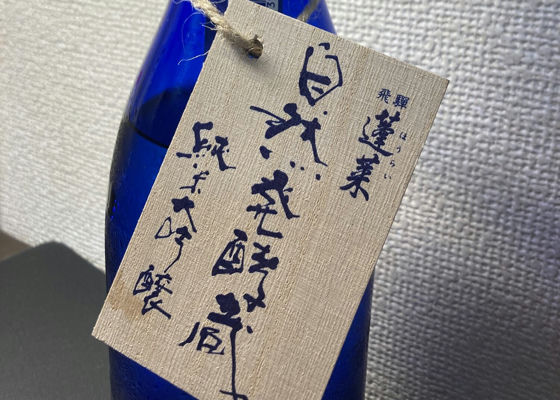 飛驒
蓬莱
ほうらい
自然発酵蔵
純米大吟醸